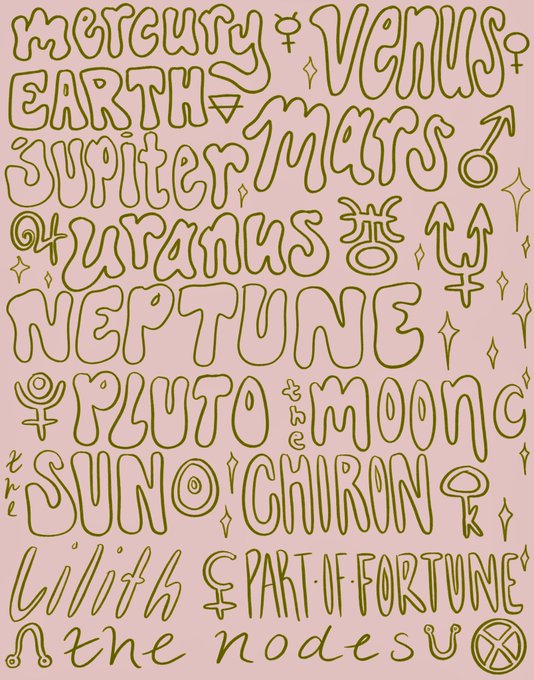 mercury venus
EARTH mars
jupiter
uranus
NEPTUNE
PLUTO the moon
the SUN CHIRON
Lilith PART·OF·FORTUNE
the nodes